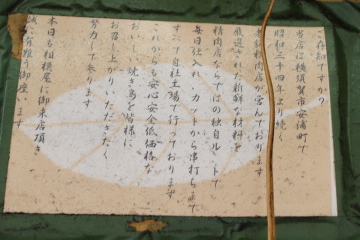 ご存知ですか？
当店は横須賀市安浦町で
昭和三十四年より続く
精肉店が営んでおります
厳選された新鮮な材料を
精肉店ならではの独自ルートで
毎日仕入れ、カットから串打ちまで
すべて自社工場で行っております
これからも安心安全低価格な
おいしい焼き鳥を皆様に
お召し上がりいただきたく
努力して参ります
本日も相模屋に御来店頂き
誠に有難う御座います